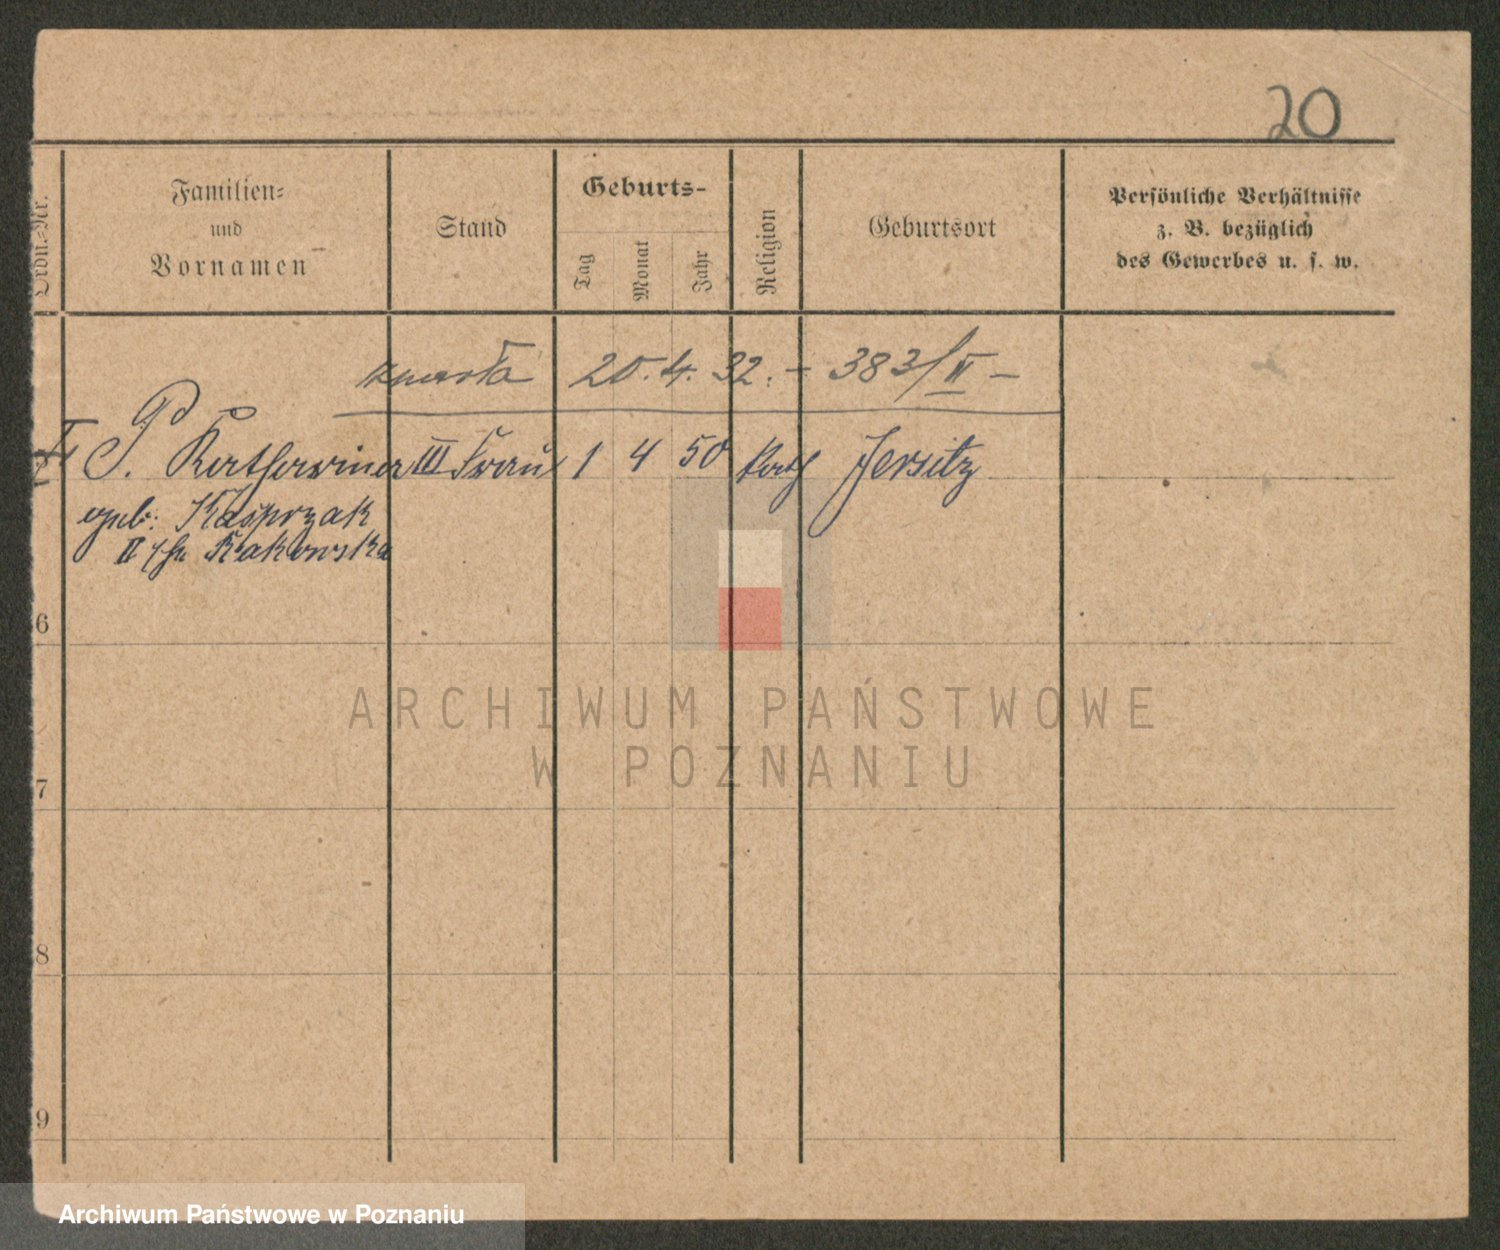 20
Ordn.-Nr.
Familien-
und
Vornamen
Stand
Geburts-
Tag
Monat
Jahr
Religion
Geburtsort
Persönliche Verhältnisse
z. B. bezüglich
des Gewerbes u. s. w.
zmarła 20.4.32. - 383/II -
P. Katharina III Frau 1 4 50 kath Jersitz
geb. Kasprzak
II Krakowska
6
7
8
9
ARCHIWUM PAŃSTWOWE
W POZNANIU
Archiwum Państwowe w Poznaniu